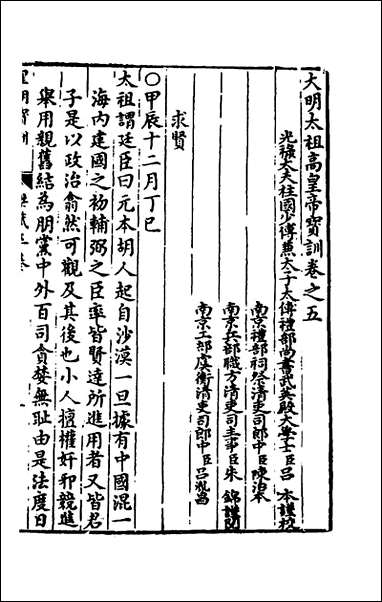 大明太祖高皇帝寶訓卷之五
光祿大夫柱國少傅兼太子太傅禮部尚書武英殿大學士臣呂 本謹校
南京禮部祠祭清吏司郎中臣陳治本
南京兵部職方清吏司主事臣朱 錦謹閱
南京工部虞衡清吏司郎中臣呂胤昌
求賢
○甲辰十二月丁巳
太祖謂廷臣曰元本胡人起自沙漠一旦據有中國混一
海内建國之初輔弼之臣率皆賢達所進用者又皆君
子是以政治翕然可觀及其後也小人擅權奸邪競進
舉用親舊結為朋黨中外百司貪婪無耻由是法度日
皇明寶訓